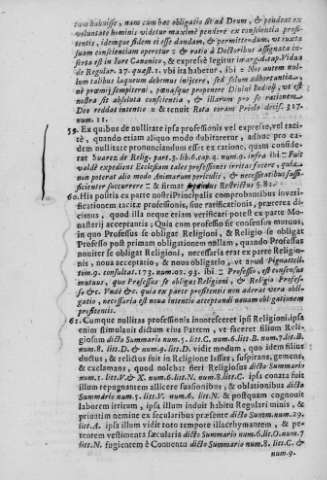 tuo habuisse, nam cum hæc obligatio sit ad Deum, & pendeat ex
voluntate hominis videtur maximè pendere ex conscientia profi-
tentis, idemque fidem ei esse dandam, & permittendum, vt iuxta
suam conscientiam operetur & ratio à Doctoribus assignata in-
serta est in Iure Canonico, & expressè legitur in cap. Vidua
de Regular. 27. quæst. 1. vbi ita habetur, ibi = Nos autem nul-
lum talibus laqueum debemus iniicere, sed solum adhortantia,
vt præmij sempiterni, pænæque propenere Diuini Iudicij, vt est
nostra sit absoluta conscientia, & illarum pro se rationem
Deo reddat intentio & tenuit Rota coram Priolo decis. 327.
num. 11.
59. Ex quibus de nullitate ipsa professionis vel expresse, vel taci-
tè, quando etiam aliquo modo dubitaretur, adhuc pro ea-
dem nullitate pronunciandum esset ex ratione, quam conside-
rat Suarez de Relig. part. 3. lib. 6. cap. 2. num. 9. infra ibi = Fuit
valdè expediens Ecclesiam tales professiones irritas facere, quia
non poterat alio modo Animarum periculis, & necessitatibus suffi-
cienter succurrere = & firmat Restrictus §. 81.
60. His positis ex parte nostri Principalis comprobantibus inuali-
ficationem tacitæ professionis, siue ratificationis, præterea di-
cimus, quod illa neque etiam verificari potest ex parte Mo-
nasterij acceptantis; Quia cum professio sit consensus mutuus,
in quo Professus se obligat Religioni, & Religio se obligat
Professo post primam obligationem nullam, quando Professus
nouiter se obligat Religioni, necessaria est ex parte Religio-
nis, noua acceptatio, & noua obligatio, vt tradit Pignattell.
tom. 9. consultat. 173. num. 02. 93. ibi = Professio, est consensus
mutuus, quo Professus se obligat Religioni, & Religio Profes-
so &c. Vndè &c. quia ex parte profitentis non aderat vera obli-
gatio, necessaria est noua intentio acceptandi nouam obligationem
profitentis.
61. Cumque nullitas professionis innotesceret ipsi Religioni, ipsa
enim stimulauit dictum eius Patrem, vt faceret filium Reli-
giosum dicto Summario num. 5. litt. C. num. 6. litt. B. num. 7. litt. B.
num. 8. litt. D. & num. 9. litt. D. vidit modum, quo idem filius
ductus, & relictus fuit in Religione Iesset, suspirans, gemens,
& exclamans, quod nolebat fieri Religiosus dicto Summario
num. 5. litt. V. & X. num. 6. litt. N. num. 8. litt. C. ipsa conata fuit
illum repugnantem allicere suasionibus, & oblationibus dicto
Summario num. 5. litt. V. num. 6. litt. N. & postquam cognouit
laborem irritum, ipsa illum induit habitu Regulari minis, &
priuatim nemine ex sæcularibus præsente dicto Summ. num. 29.
litt. A. ipsa illum vidit toto tempore illacrhymantem, & pe-
tentem vestimenta sæcularia dicto Summario num. 6. litt. O. num. 7
litt. N. fugientem è Conuentu dicto Summario num. 8. litt. C. &
num. 9.